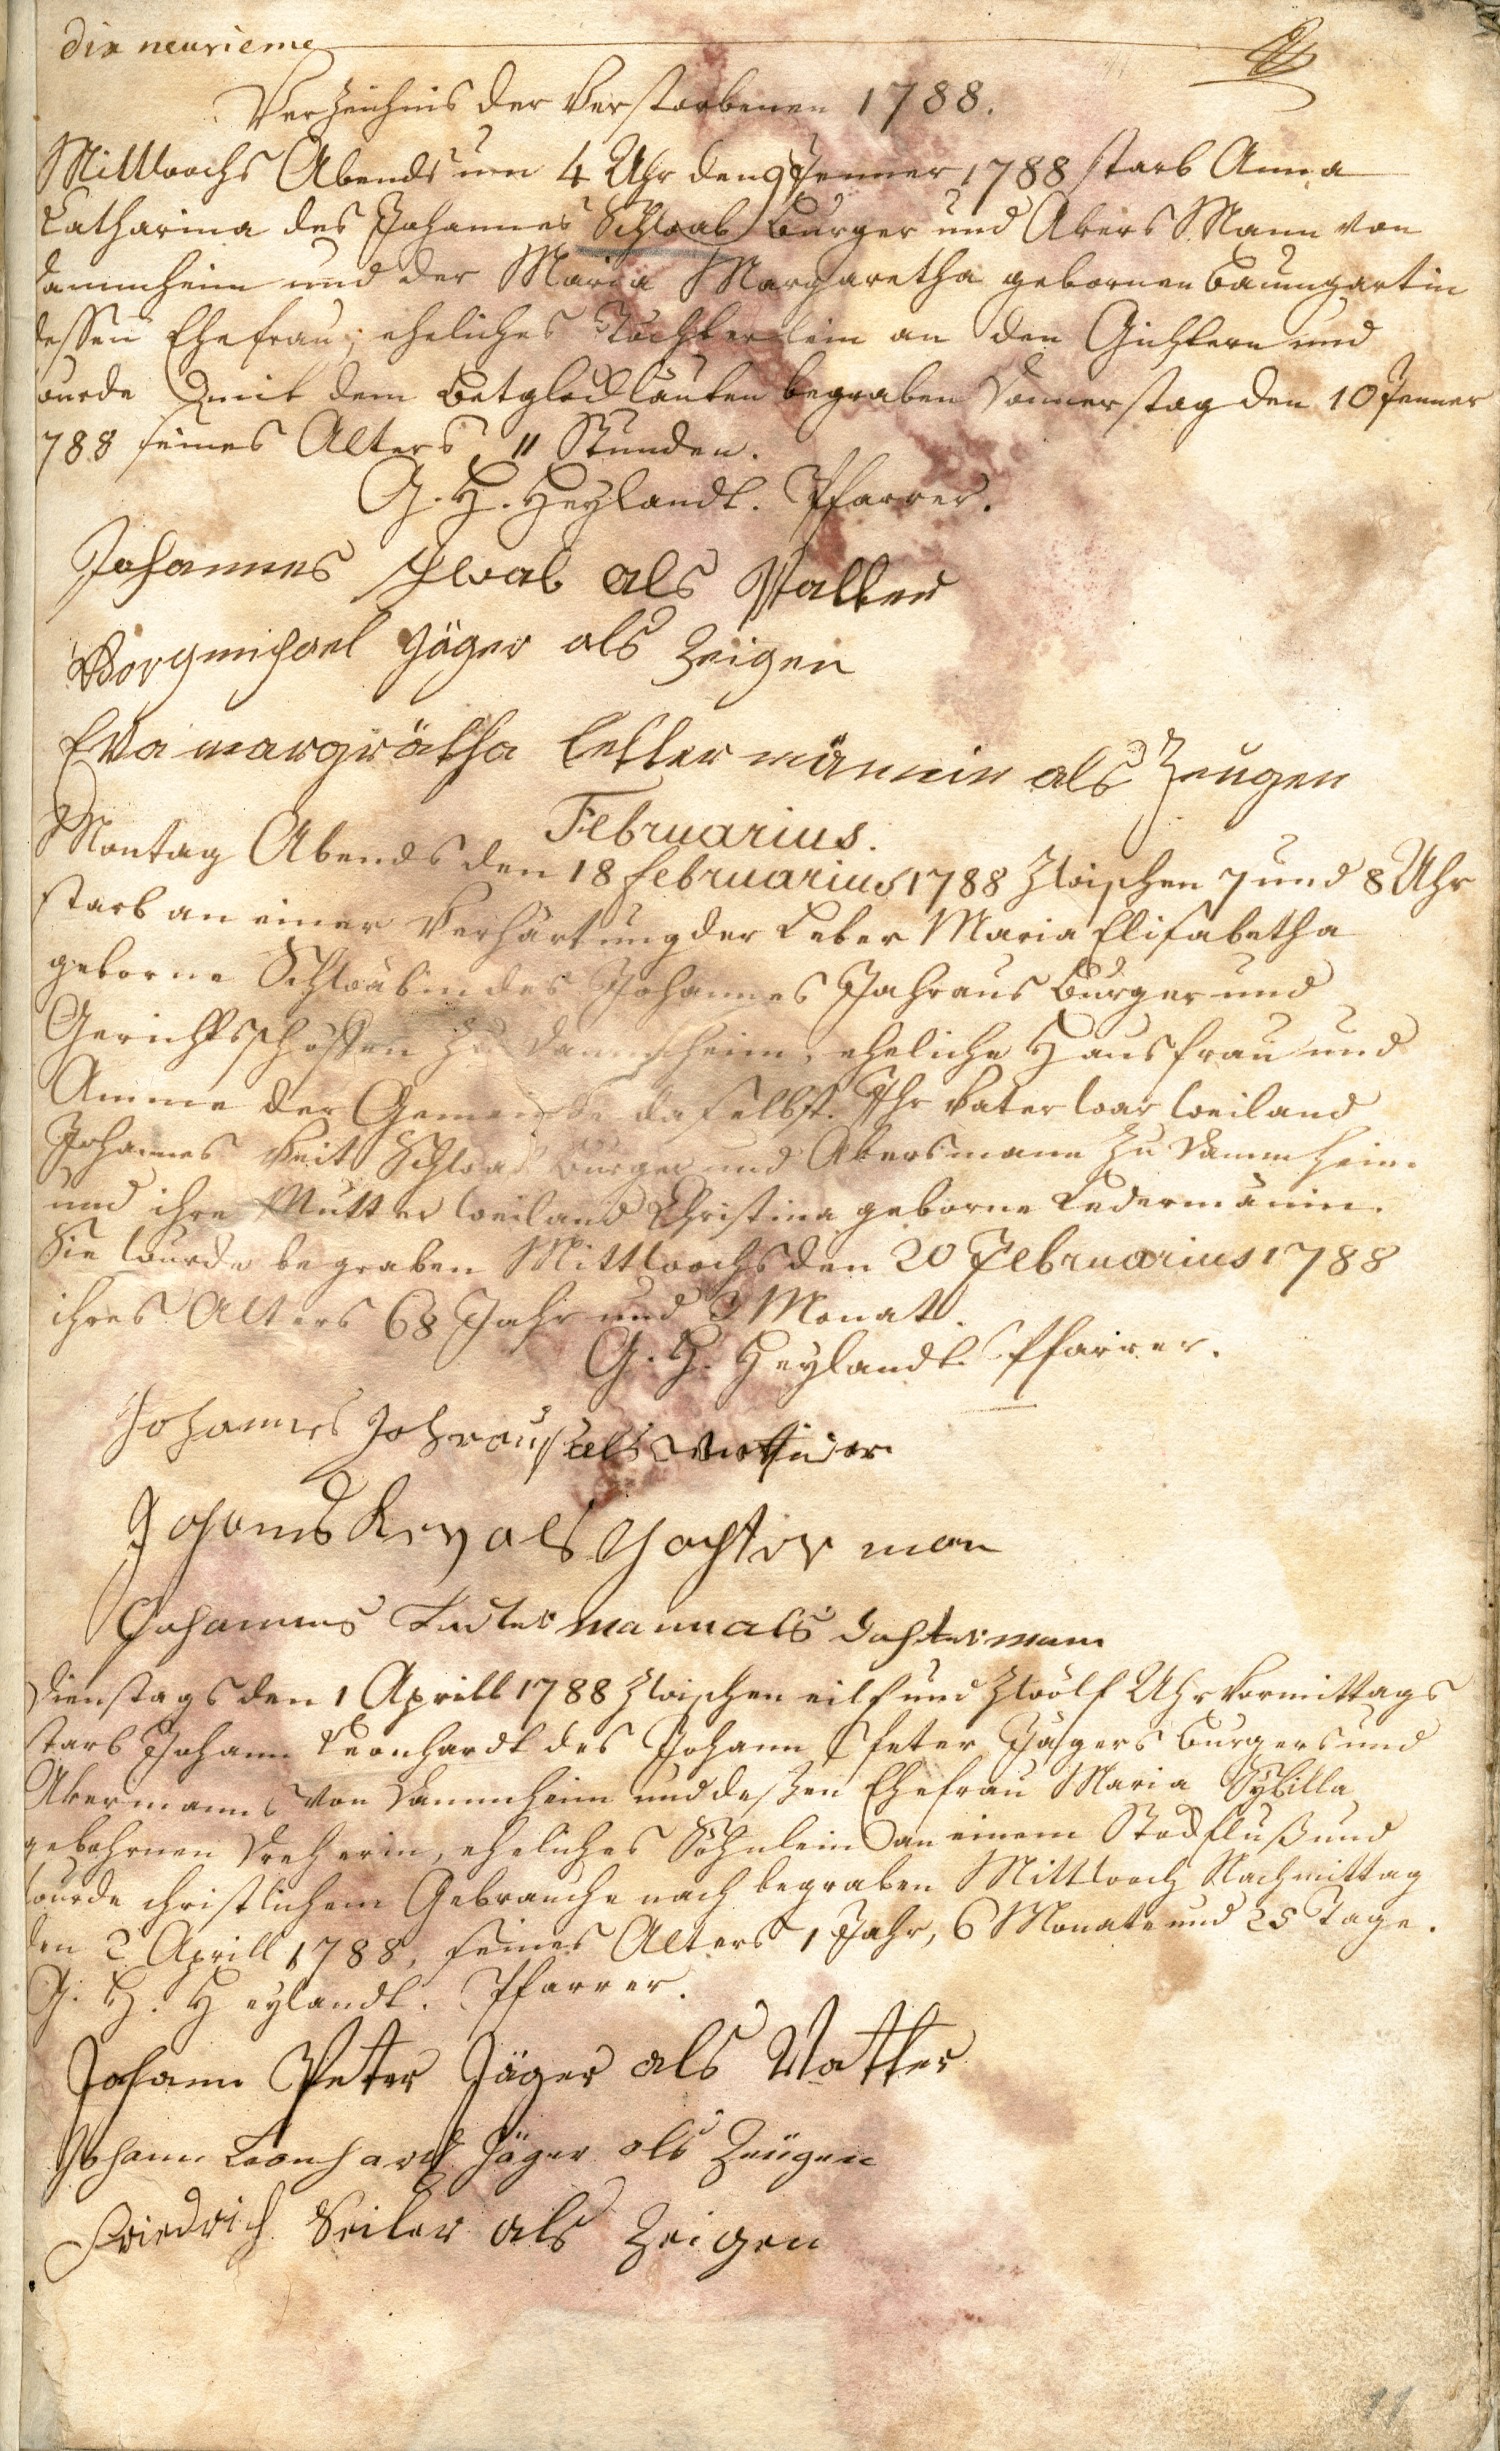 dix neuvieme
Verzeichnis der Verstorbenen 1788.
Mittwochs Abends um 4 Uhr den 9 Jenner 1788 starb Anna
Catharina des Johannes Schwab Burger und Akers Mann von
Dammheim und der Maria Margaretha gebornen Baumgartin
dessen Ehefrau, eheliches Töchterlein an den Gichtern und
wurde mit dem Betglockläuten begraben Donnerstag den 10 Jenner
1788 seines Alters 11 Stunden.
G. H. Heylandt. Pfarrer.
Johannes Schwab als Vatter
Görgmichael Jäger als Zeigen
Eva margrätha lettermännin als Zeugen
Februarius.
Montag Abends den 18 Februarius 1788 zwischen 7 und 8 Uhr
starb an einer Verhärtung der Leber Maria Elisabetha
geborne Schwäbin des Johannes Jahraus Burger und
Gerichtsschöffen zu Dammheim, eheliche Hausfrau und
Amme der Gemeinde daselbst. Ihr Vater war weiland
Johannes Veit Schwab Burger und Akersmann zu Dammheim
und ihre Mutter weiland Christina geborne Ledermännin.
Sie wurde begraben Mittwochs den 20 Februarius 1788
ihres Alters 68 Jahr und 3 Monat.
G. H. Heylandt. Pfarrer.
Johannes Johraus als
Johanes als dochter man
Johannes Ledermann als Dochtermann
Dienstags den 1 Aprill 1788 zwischen eilf und zwölf Uhr Vormittags
starb Johann Leonhardt des Johann Peter Jägers Burgers und
Akermanns von Dammheim und deßen Ehefrau Maria Sÿbilla
gebohrnen Dreherin, eheliches Söhnlein an einem Stockfluß und
wurde christlichem Gebrauche nach begraben Mittwoch Nachmittag
den 2 Aprill 1788, seines Alters 1 Jahr, 6 Monate und 25 Tage.
G. H. Heylandt. Pfarrer.
Johann Peter Jäger als Vatter
Johann Leonhard Jäger als Zeügen
Friedrich Seiler als Zeigen
11